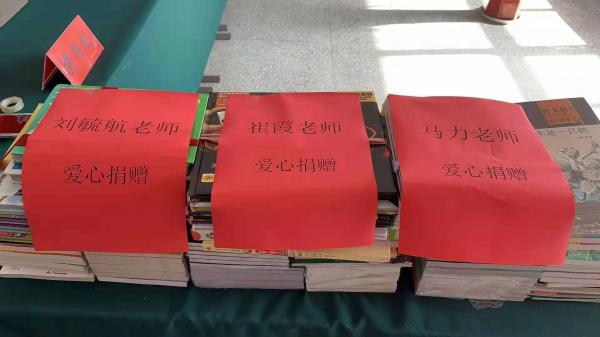 刘毓航老师
爱心捐赠
崔霞老师
爱心捐赠
马力老师
爱心捐赠